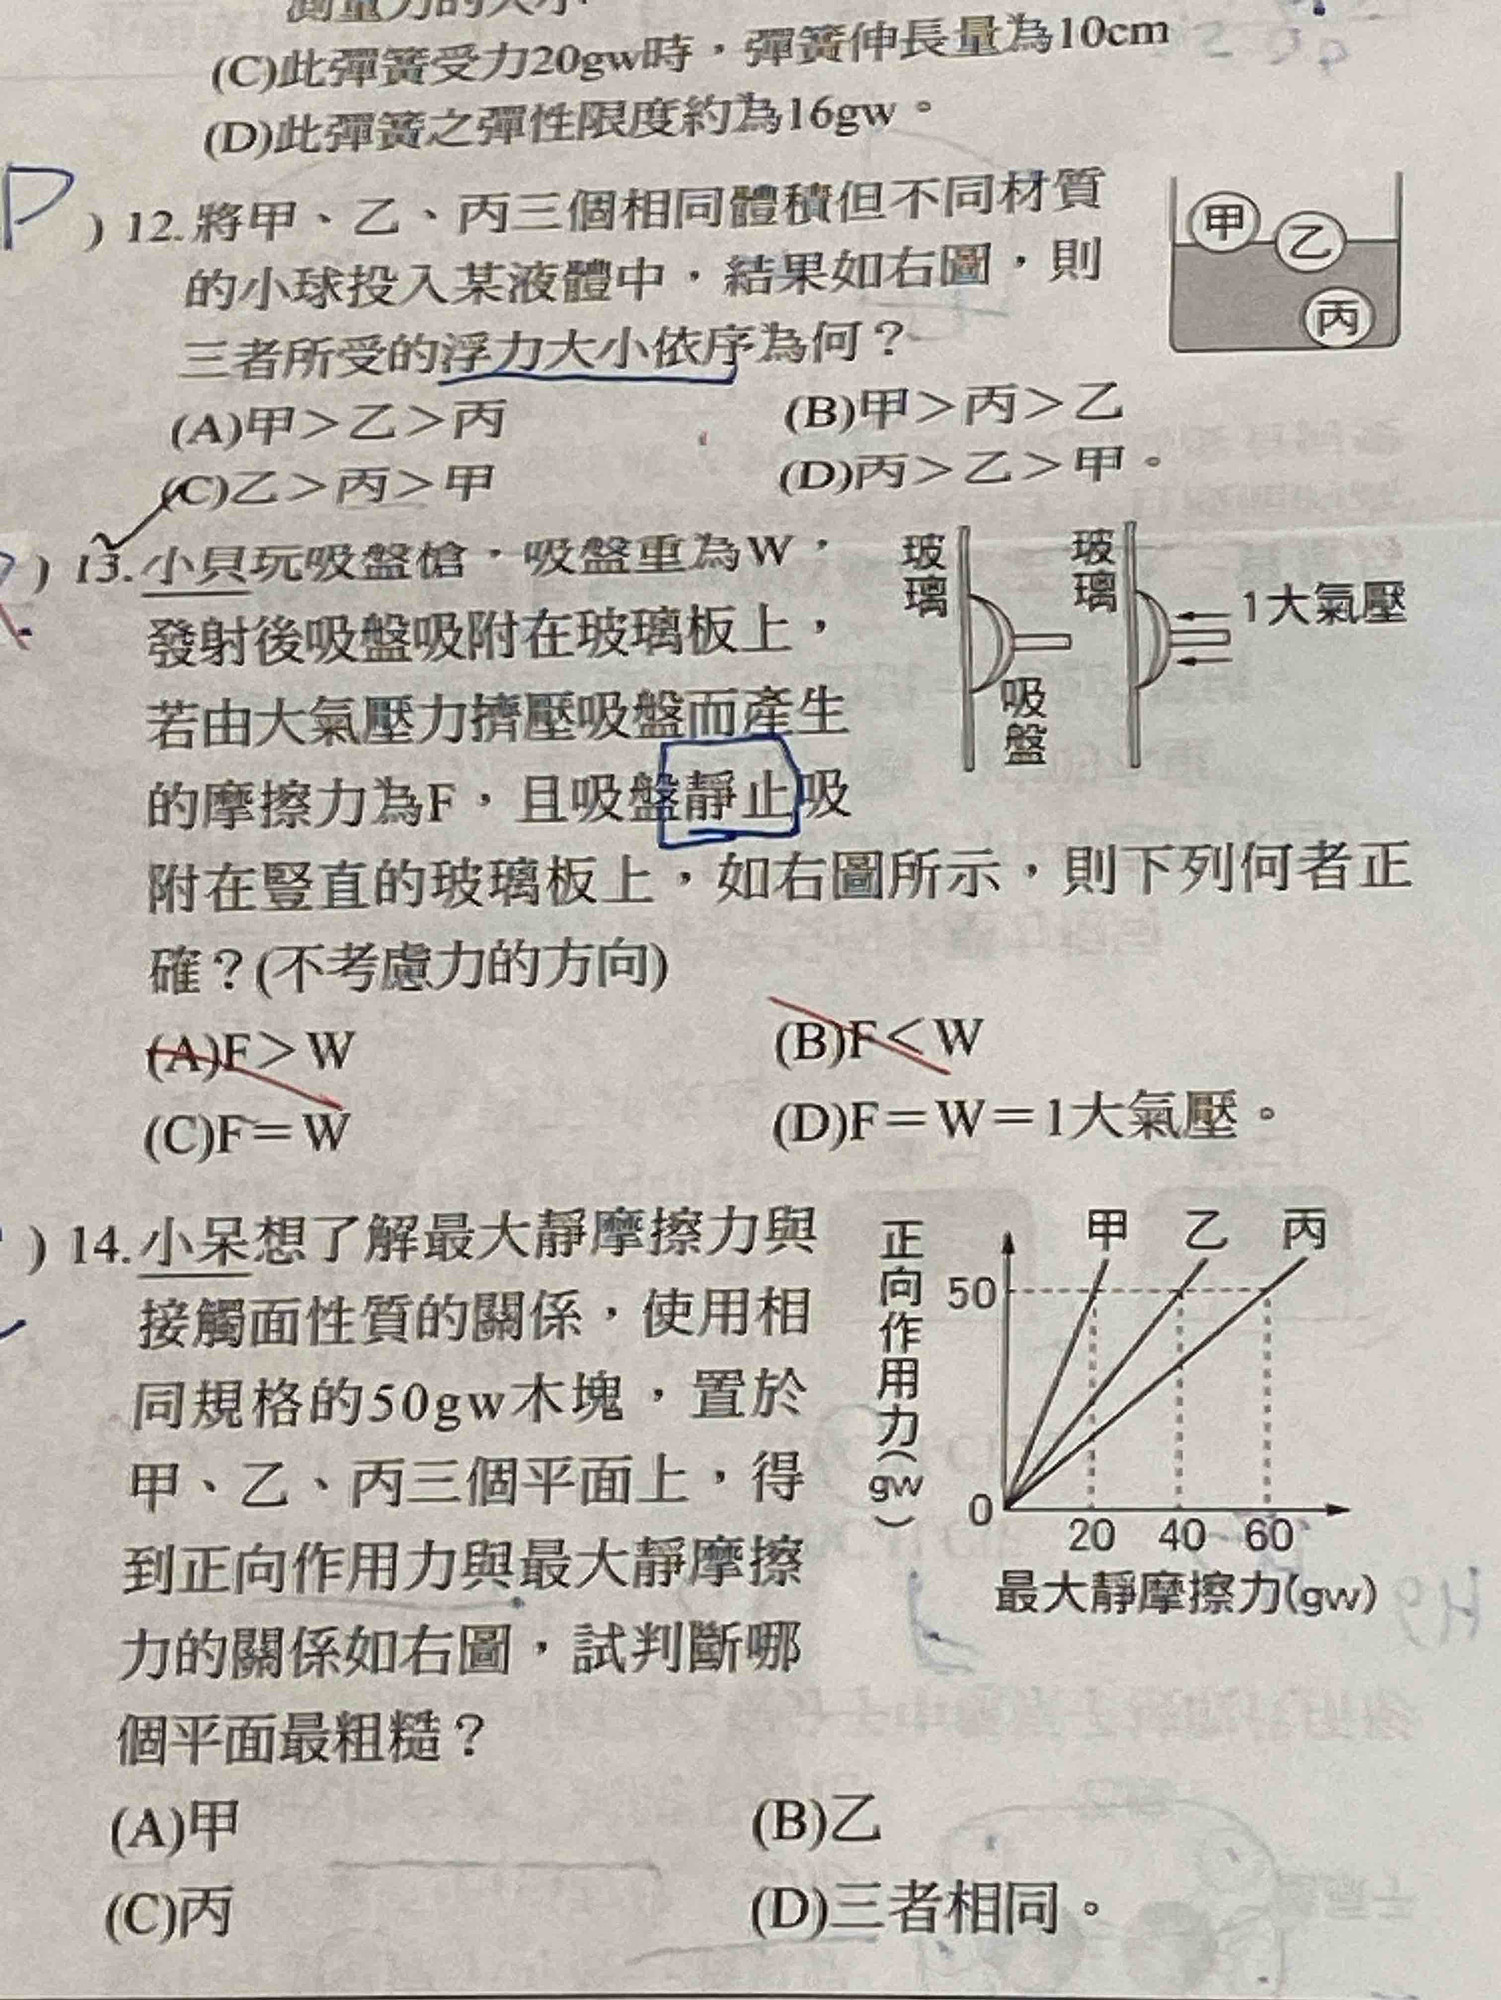 測量力的大小
(C)此彈簧受力20gw時，彈簧伸長量為10cm
(D)此彈簧之彈性限度約為16gw。
D
) 12.將甲、乙、丙三個相同體積但不同材質
的小球投入某液體中，結果如右圖，則
三者所受的浮力大小依序為何？
甲
乙
丙
(A)甲＞乙＞丙 (B)甲＞丙＞乙
(C)乙＞丙＞甲 (D)丙＞乙＞甲。
) 13.小貝玩吸盤槍，吸盤重為W，
發射後吸盤吸附在玻璃板上，
若由大氣壓力擠壓吸盤而產生
的摩擦力為F，且吸盤靜止吸
附在豎直的玻璃板上，如右圖所示，則下列何者正
確？(不考慮力的方向)
玻璃
吸盤
玻璃
1大氣壓
(A)F＞W (B)F＜W
(C)F＝W (D)F＝W＝1大氣壓。
) 14.小呆想了解最大靜摩擦力與
接觸面性質的關係，使用相
同規格的50gw木塊，置於
甲、乙、丙三個平面上，得
到正向作用力與最大靜摩擦
力的關係如右圖，試判斷哪
個平面最粗糙？
正向作用力(gw)
甲 乙 丙
50
0
20 40 60
最大靜摩擦力(gw)
(A)甲 (B)乙
(C)丙 (D)三者相同。